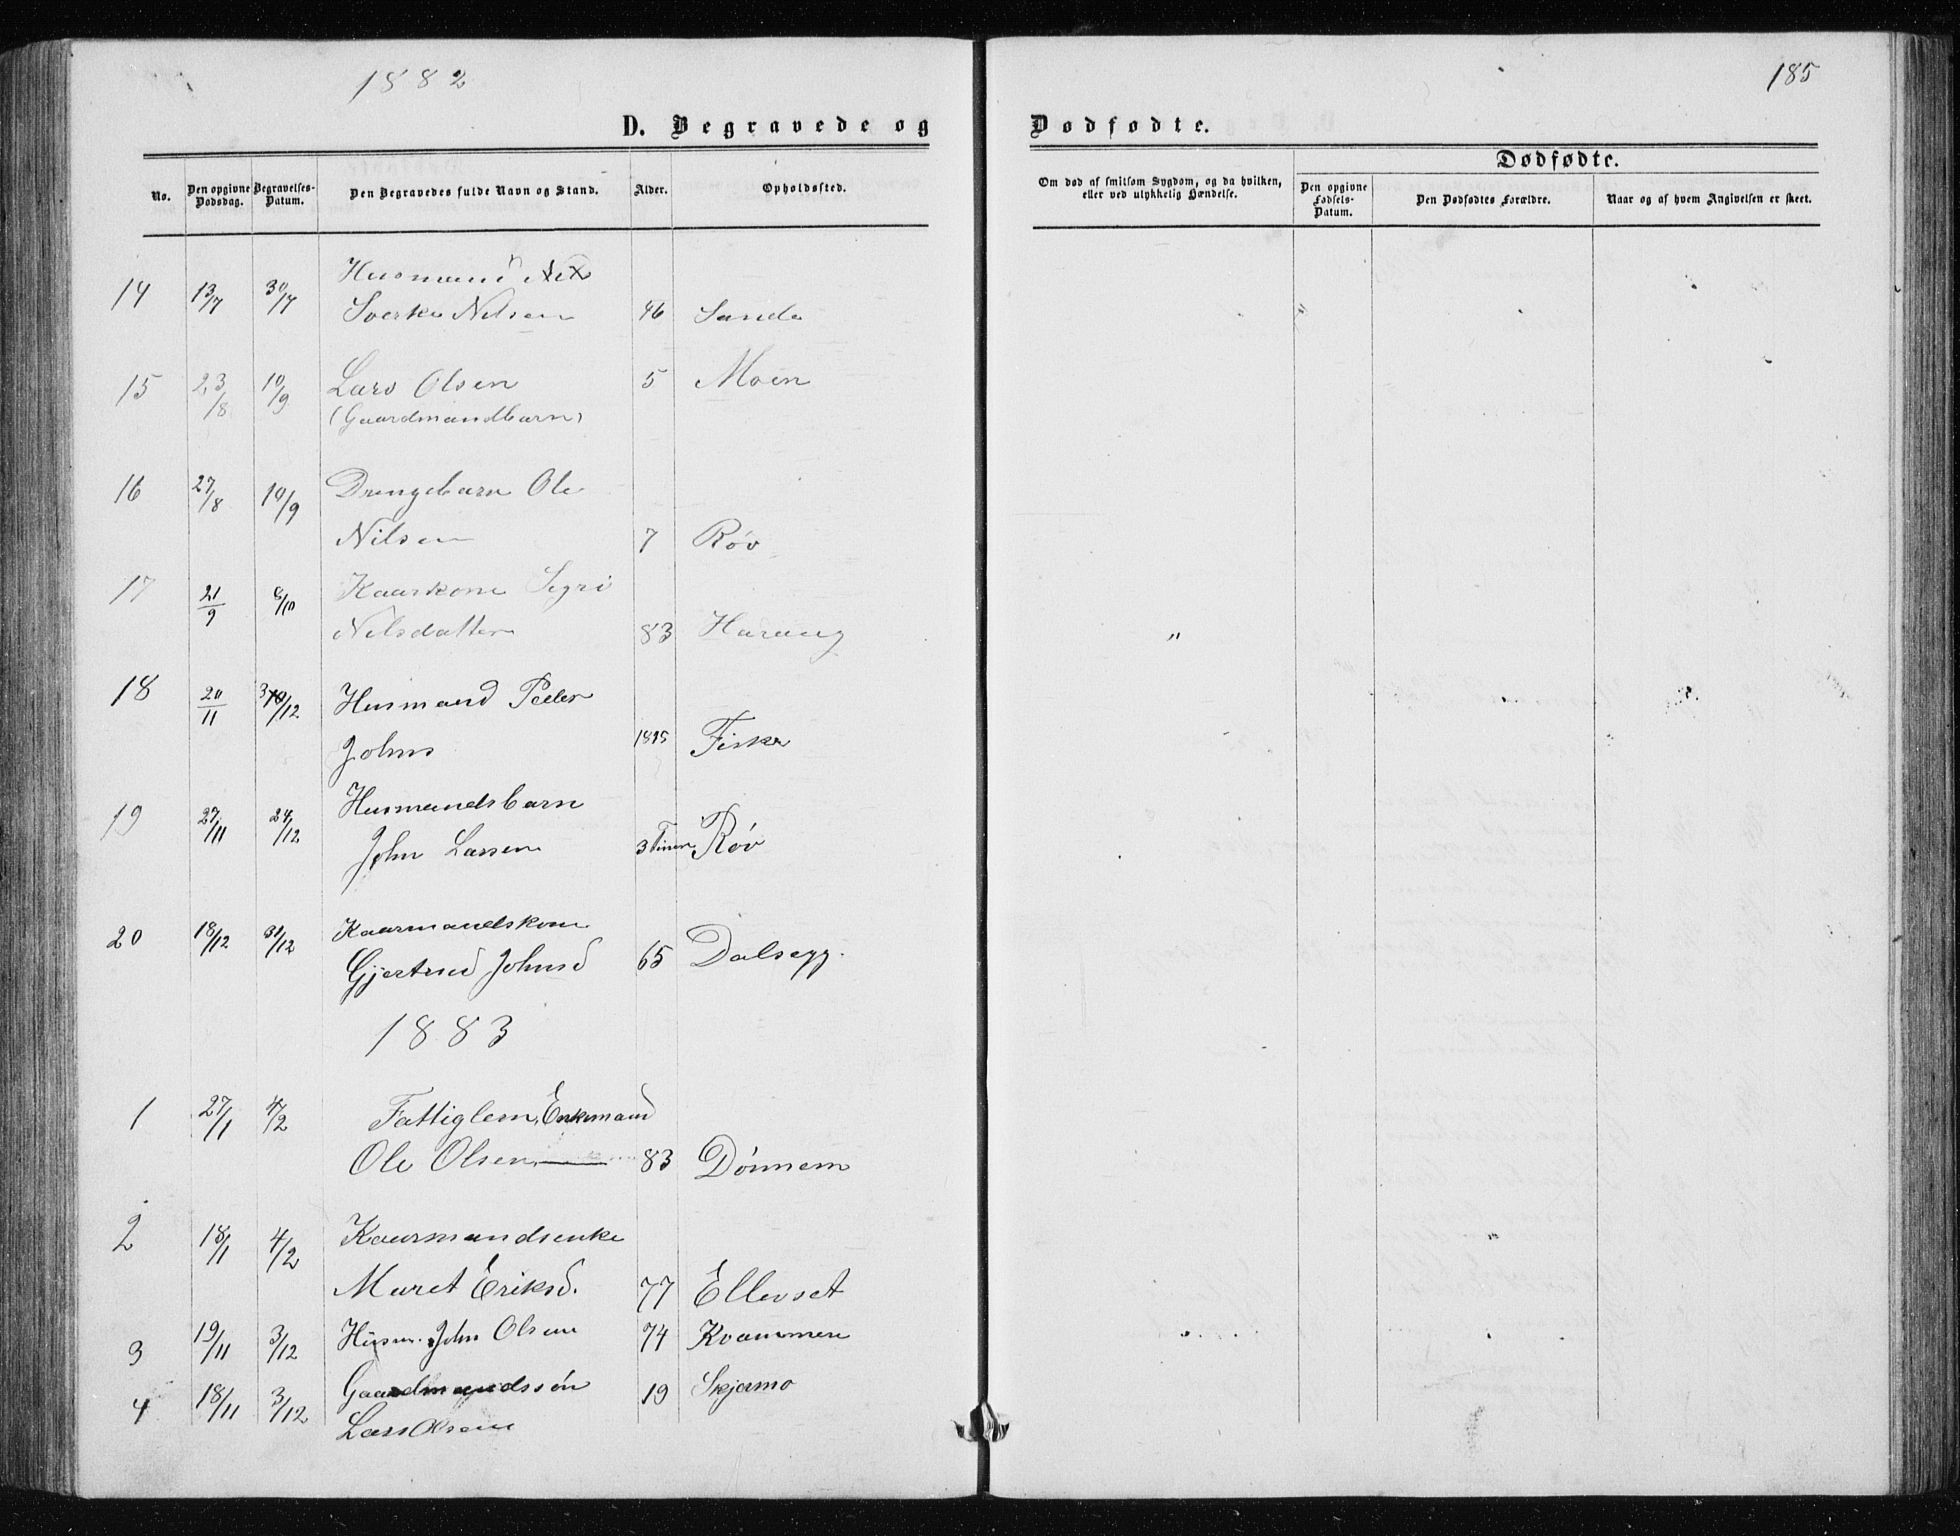 1882
185
D. Begravede og
Dødfødte.
Dødfødte.
No.
Den opgivne Dødsdag.
Begravelses-Datum.
Den Begravedes fulde Navn og Stand.
Alder.
Opholdssted.
Om død af smitsom Sygdom, og da hvilken, eller ved ulykkelig Hændelse.
Den opgivne Fødsels-Datum.
Den Dødfødtes Forældre.
Naar og af hvem Angivelsen er skeet.
14 13/7 30/7 Husmand
Sverke Nilsen 46 Sande "
15 23/8 10/9 Lars Olsen 5 Moen
(Gaardmandbarn)
16 27/8 10/9 Drengebarn Ole
Nilsen 7 Røv
17 21/9 8/10 Kaarkone Sigri
Nilsdatter 83 Harang "
18 20/11 3/12 Husmand Peder
Johns Fiske
19 27/11 24/12 Husmandsbarn
John Larsen 3 Timer Røv
20 18/12 31/12 Kaarmandskone
Gjertrud Johnsd 65 Dalsegg.
1883
1 27/1 4/2 Fattiglem, Enkemand
Ole Olsen 83 Dønnem
2 18/1 4/2 Kaarmandsenke
Maret Eriksd. 77 Ellevset
3 19/11 3/12 Husm. John Olsen 74 Kvammen
4 18/11 3/12 Gaardmandssøn 19 Skjermo
Lars Olsen